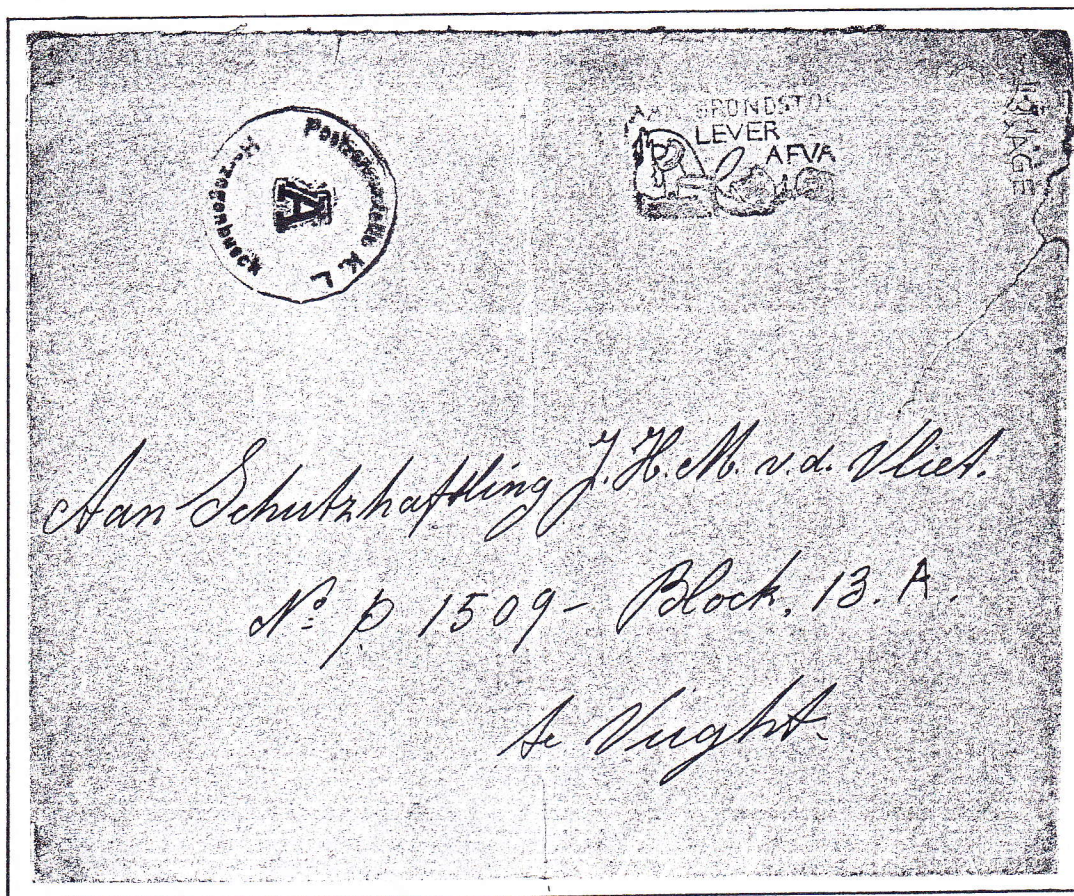 Postzensurstelle K. L.
Herzogenbusch
A
GRONDSTO
LEVER
AFVA
HAGE
Aan Schutzhaftling J. H. M. v. d. Vliet.
No. P 1509 - Block, 13. A.
te Vught.